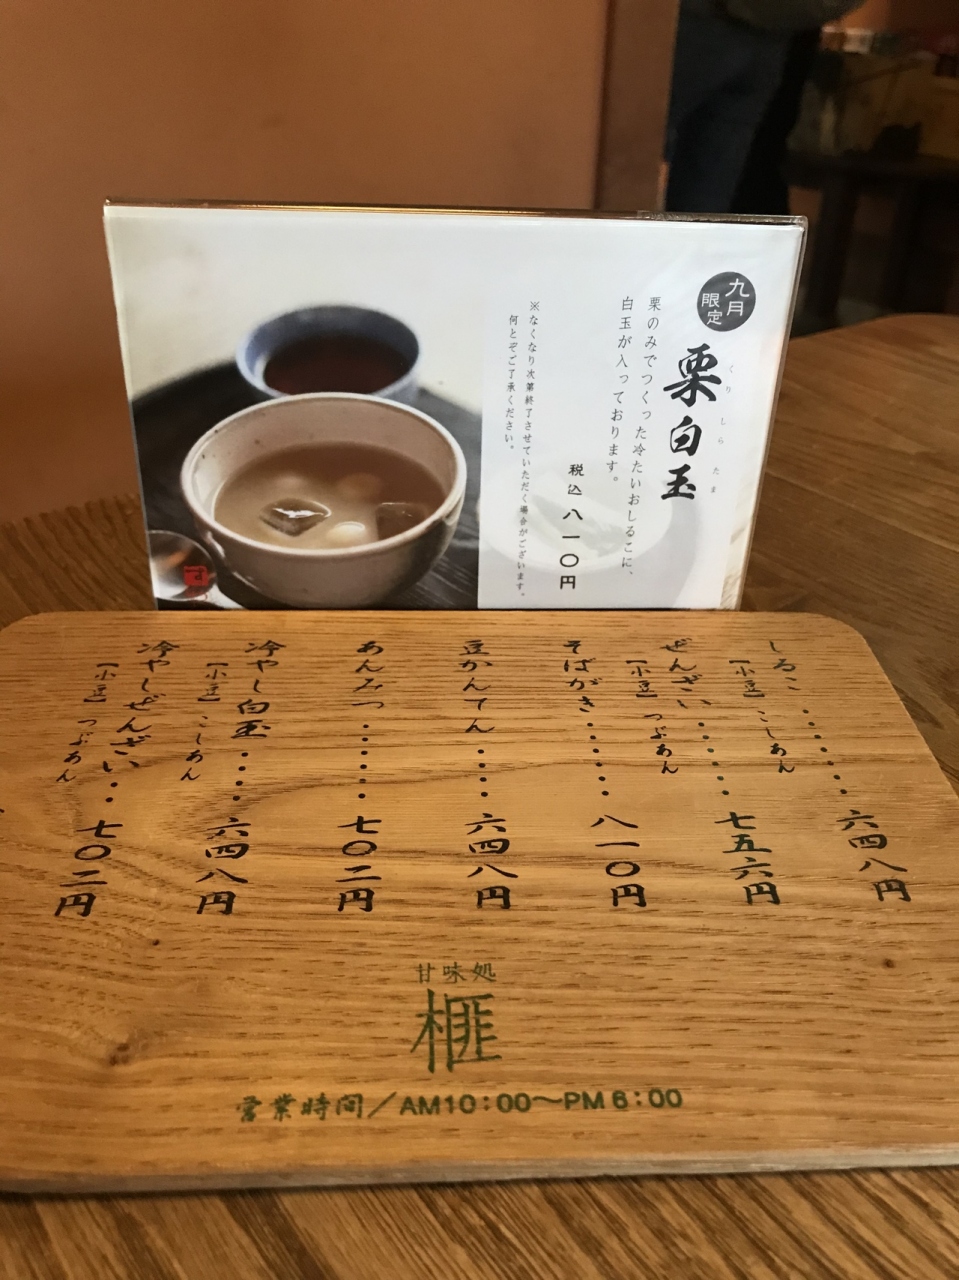 九月
限定
栗白玉
くりしらたま
栗のみでつくった冷たいおしるこに、
白玉が入っております。
税込八一〇円
※なくなり次第終了させていただく場合がございます。
何とぞご了承ください。
しるこ・・・・・・六四八円
【小豆】こしあん
ぜんざい・・・・・七五六円
【小豆】つぶあん
そばがき・・・・・八一〇円
豆かんてん・・・・六四八円
あんみつ・・・・・七〇二円
冷やし白玉・・・・六四八円
【小豆】こしあん
冷やしぜんざい・・七〇二円
【小豆】つぶあん
甘味処
榧
営業時間／AM10：00〜PM6：00